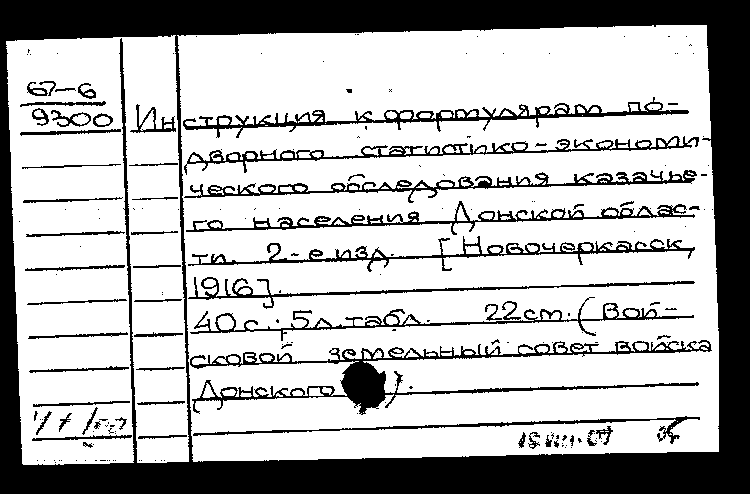 67-6
9300
Инструкция к формулярам по-
дворного статистико-экономи-
ческого обследования казачье-
го населения Донской облас-
ти. 2-е изд. [Новочеркасск,
1916].
40 с.; 5 л. табл. 22 см. (Вой-
сковой земельный совет войска
Донского).